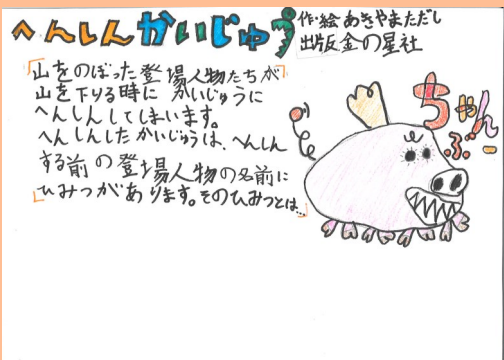 へんしんかいじゅう
作・絵 あきやまただし
出版 金の星社
「山をのぼった登場人物たちが
山を下りる時に かいじゅうに
へんしんしてしまいます。
へんしんしたかいじゅうは、へんしん
する前の登場人物の名前に
ひみつがあります。そのひみつとは…」
ちゃん
ぶー